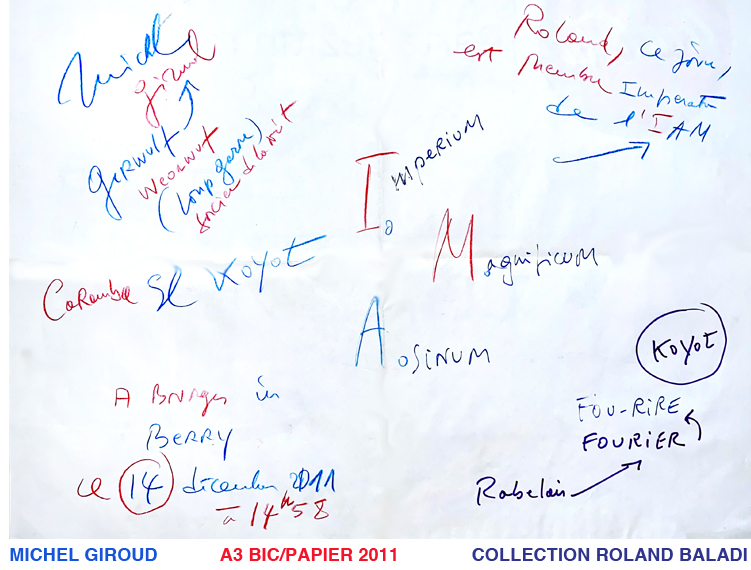 Michel
giroud
gerwulf
weorwulf
(loup garou)
sorcier de la nuit
Roland, ce jour,
est Membre Imperator
de l'IAM
Imperium
Magnificum
Aosinum
Caramba El Koyot
Koyot
FOU-RIRE
FOURIER
Rabelais
A Bourges in
BERRY
ce 14 décembre 2011
à 14h58
MICHEL GIROUD
A3 BIC/PAPIER 2011
COLLECTION ROLAND BALADI